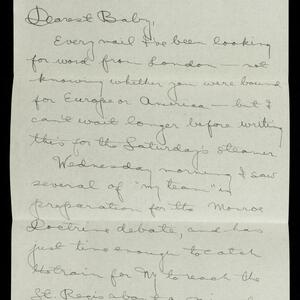 Dearest Baby,
Every mail I've been looking
for word from London - not
knowing whether you were bound
for Europe or America - but I
can't wait longer before writing
this for the Saturday's steamer.
Wednesday morning I saw
several of "my team" in
preparation for the Monroe
Doctrine debate, and has
just time enough to catch
the train for NY to reach the
St. Regis about